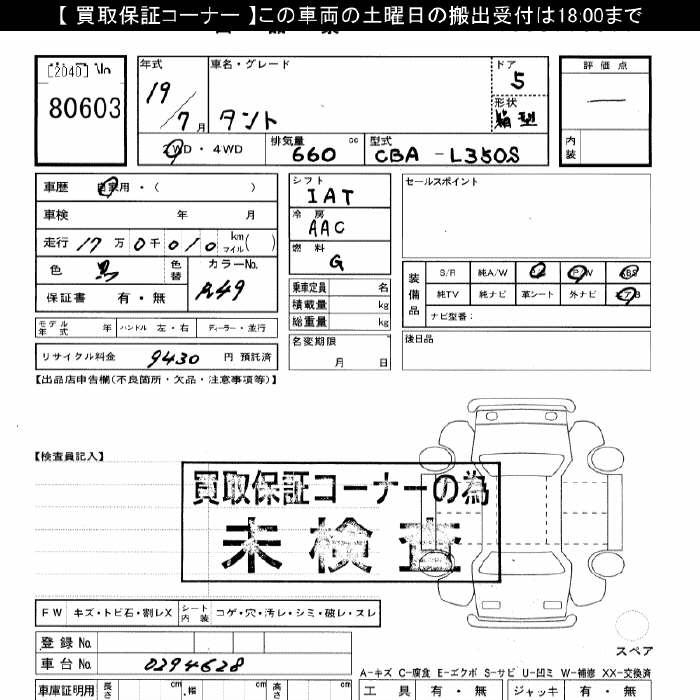 【 買取保証コーナー 】この車両の土曜日の搬出受付は18:00まで
[2040] No
80603
年式
19/7月
車名・グレード
タント
ドア
5
形状
箱型
評価点
内装
2WD・4WD
排気量
660 cc
型式
CBA-L350S
車歴 自家用・( )
車検 年 月
走行 17万0千010 km マイル ( )
色 黒
色替
カラーNo.
A49
保証書 有・無
シフト
IAT
冷房
AAC
燃料
G
乗車定員 名
積載量 kg
総重量 kg
名変期限
月 日
セールスポイント
装備品
S/R 純A/W P/S P/W ABS
純TV 純ナビ 革シート 外ナビ エアB
ナビ型番:
後日品
モデル年式 年 ハンドル 左・右 ディーラー・並行
リサイクル料金 9430 円 預託済
【出品店申告欄(不良箇所・欠品・注意事項等)】
【検査員記入】
買取保証コーナーの為
未検査
FW キズ・トビ石・割レX シート内装 コゲ・穴・汚レ・シミ・破レ・スレ
登録No.
車台No. 0294628
スペア
A-キズ C-腐食 E-エクボ S-サビ U-凹ミ W-補修 XX-交換済
車庫証明用 長さ cm 幅 cm 高さ cm
工具 有・無 ジャッキ 有・無